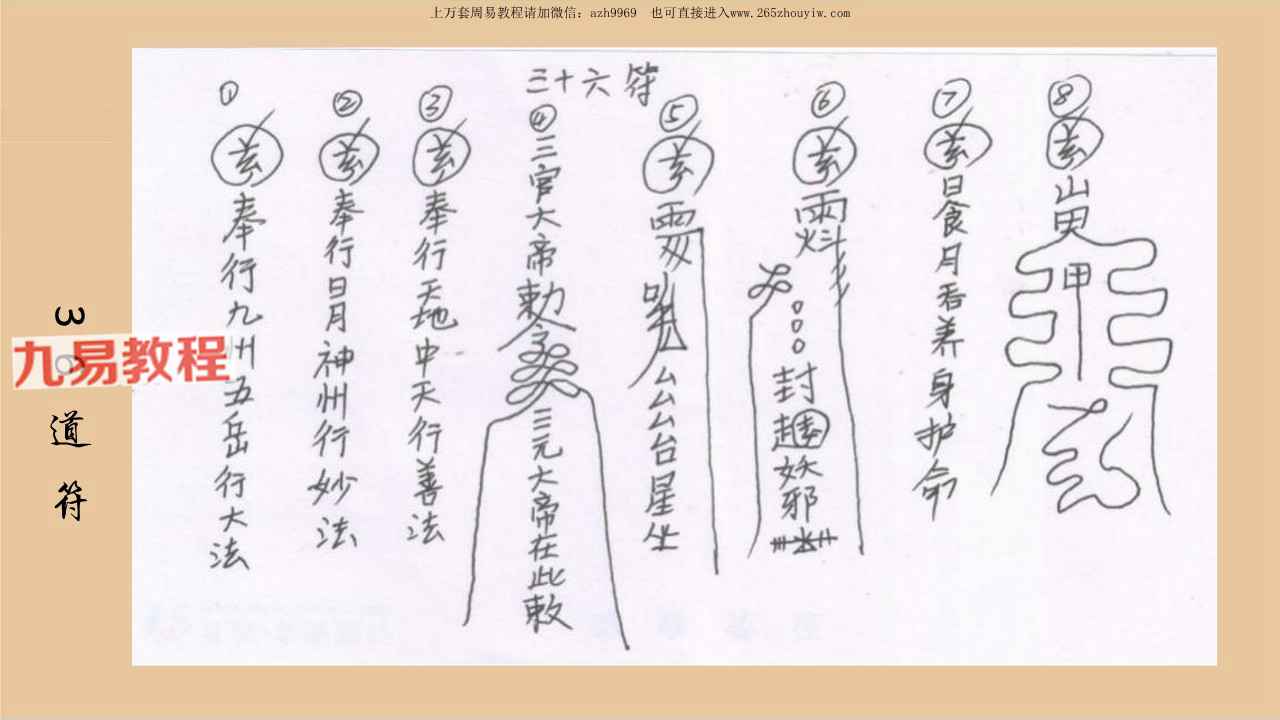 上万套周易教程请加微信：azh9969 也可直接进入www.265zhouyiw.com
三十六符
① 玄 奉行九州五岳行大法
② 玄 奉行日月神州行妙法
③ 玄 奉行天地中天行善法
④ 三官大帝敕令 三元大帝在此敕
⑤ 玄 厶厶台星坐
⑥ 玄 封 妖邪
⑦ 玄 日食月吞养身护命
⑧ 玄
甲
3 道符
九易教程